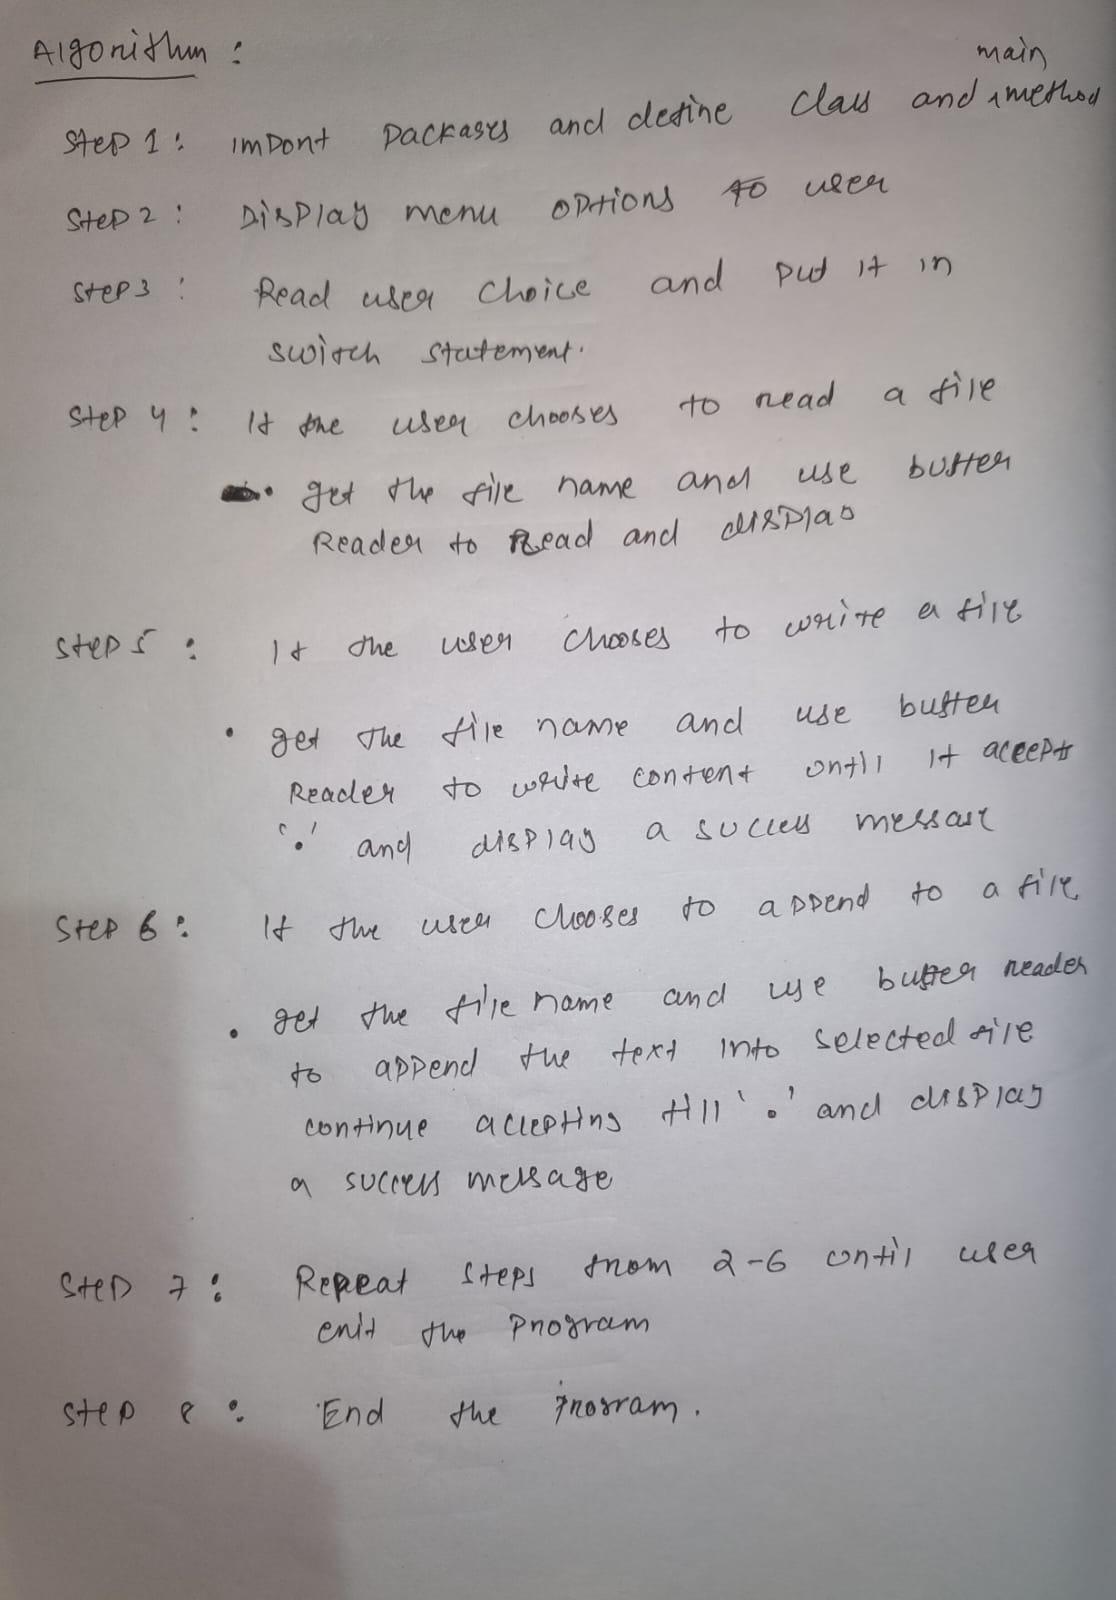 Algorithm :
Step 1 : import packages and define class and main method
Step 2 : Display menu options to user
Step 3 : Read user choice and put it in
switch statement.
Step 4 : If the user chooses to read a file
• get the file name and use buffer
Reader to Read and display
Step 5 : If the user chooses to write a file
• get the file name and use buffer
Reader to write content until it accepts
'.' and display a success message
Step 6 : If the user chooses to append to a file
• get the file name and use buffer reader
to append the text into selected file
continue accepting till '.' and display
a success message
Step 7 : Repeat steps from 2-6 until user
exit the program
Step 8 : End the program.